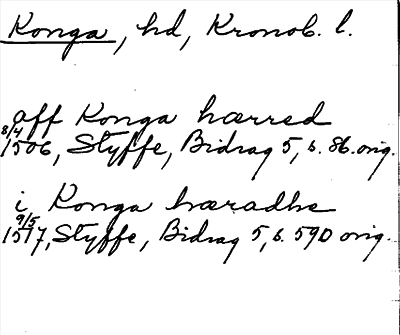 Konga, hd, Kronob. l.
aff Konga hærred
8/4 1506, Styffe, Bidrag 5, s. 86. orig.
i Konga hæradhe
9/5 1517, Styffe, Bidrag 5, s. 590 orig.